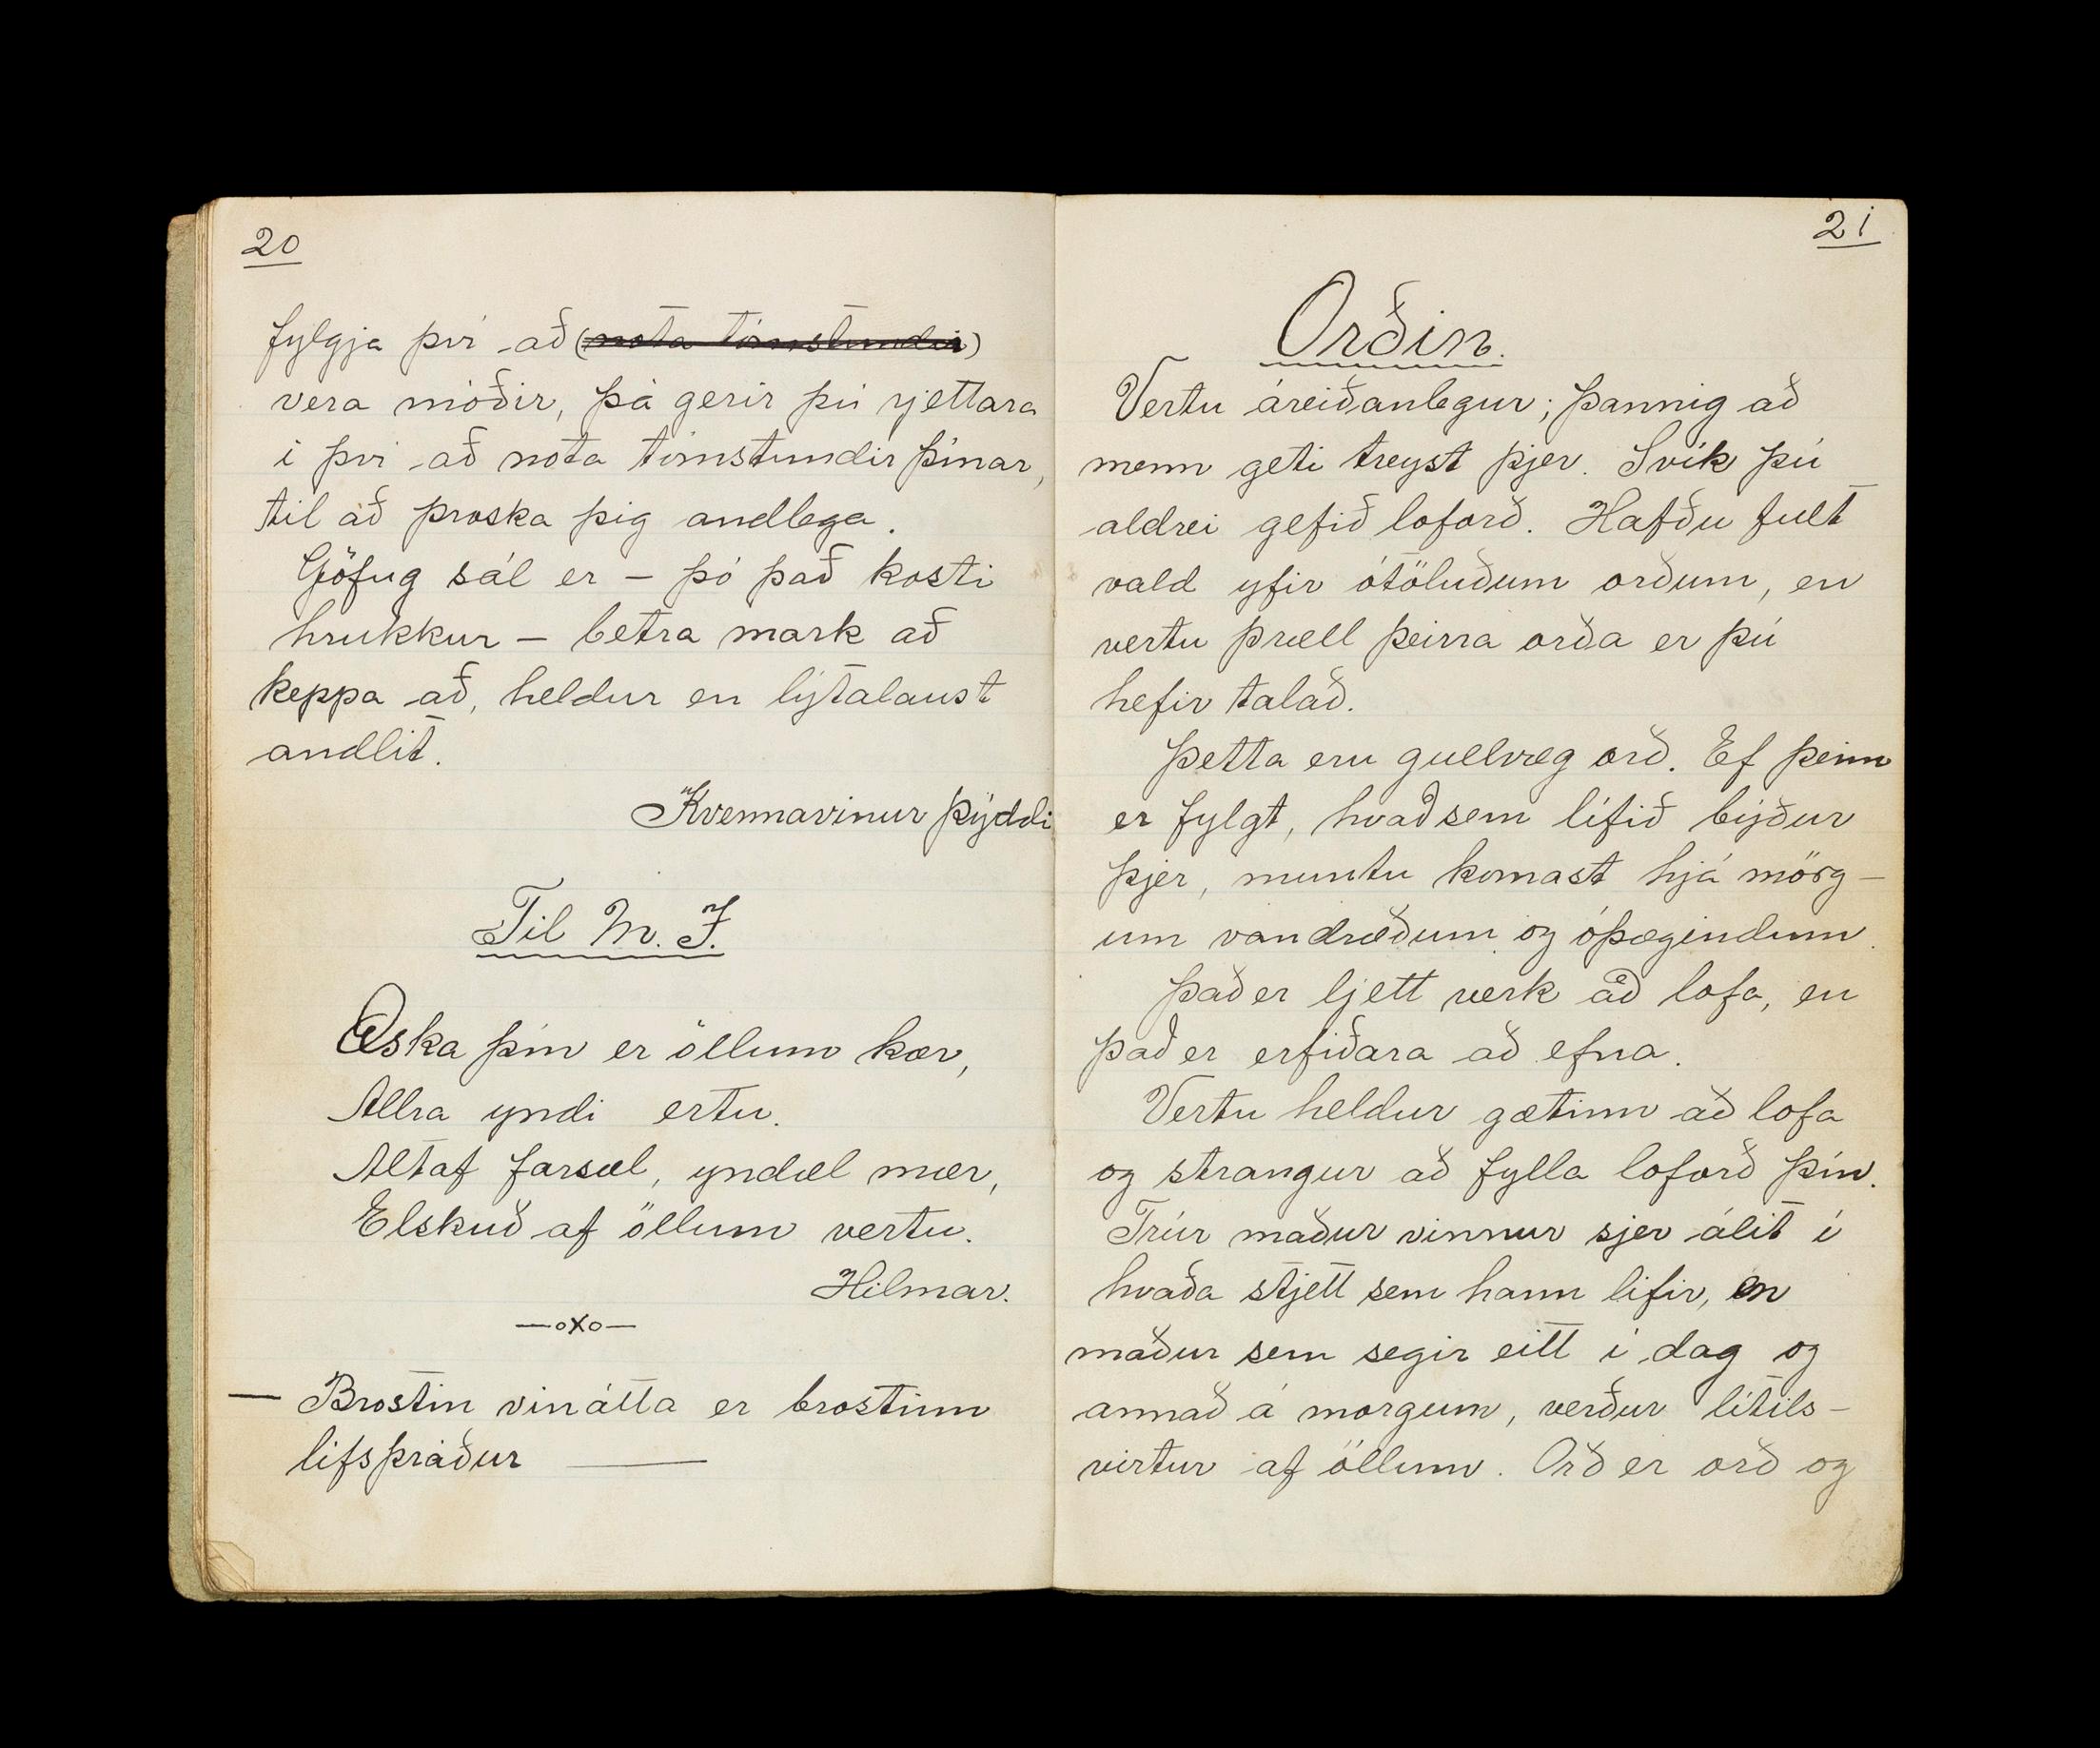 20
fylgja því að (nota tómstundir)
vera móðir, þá gerir þú rjettara
í því að nota tómstundir þínar,
til að þroska þig andlega.
Göfug sál er – þó það kosti
hrukkur – betra mark að
keppa að, heldur en lýtalaust
andlit.
Kvennavinur þýddi
Til M. J.
Æska þín er öllum kær,
Allra yndi ertu.
Altaf farsæl, yndæl mær,
Elskuð af öllum vertu.
Hilmar.
—oxo—
— Brostin vinátta er brostinn
lífsþráður ——
21
Orðin.
Vertu áreiðanlegur; þannig að
menn geti treyst þjer. Svík þú
aldrei gefið loforð. Hafðu fult
vald yfir ótöluðum orðum, en
vertu þræll þeirra orða er þú
hefir talað.
Þetta eru gullvæg orð. Ef þeim
er fylgt, hvað sem lífið býður
þjer, muntu komast hjá mörg–
um vandræðum og óþægindum.
Það er ljett verk að lofa, en
það er erfiðara að efna.
Vertu heldur gætinn að lofa
og strangur að fylla loforð þín.
Trúr maður vinnur sjer álit í
hvaða stjett sem hann lifir, en
maður sem segir eitt í dag og
annað á morgum, verður lítils–
virtur af öllum. Orð er orð og